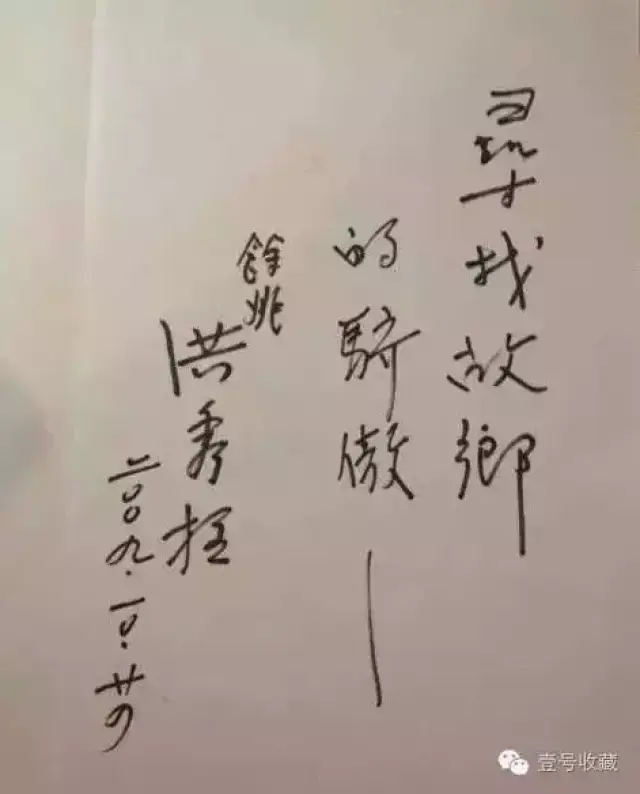 尋找故鄉
的驕傲—
餘姚
洪秀柱
二〇〇九.一〇.廿
壹号收藏